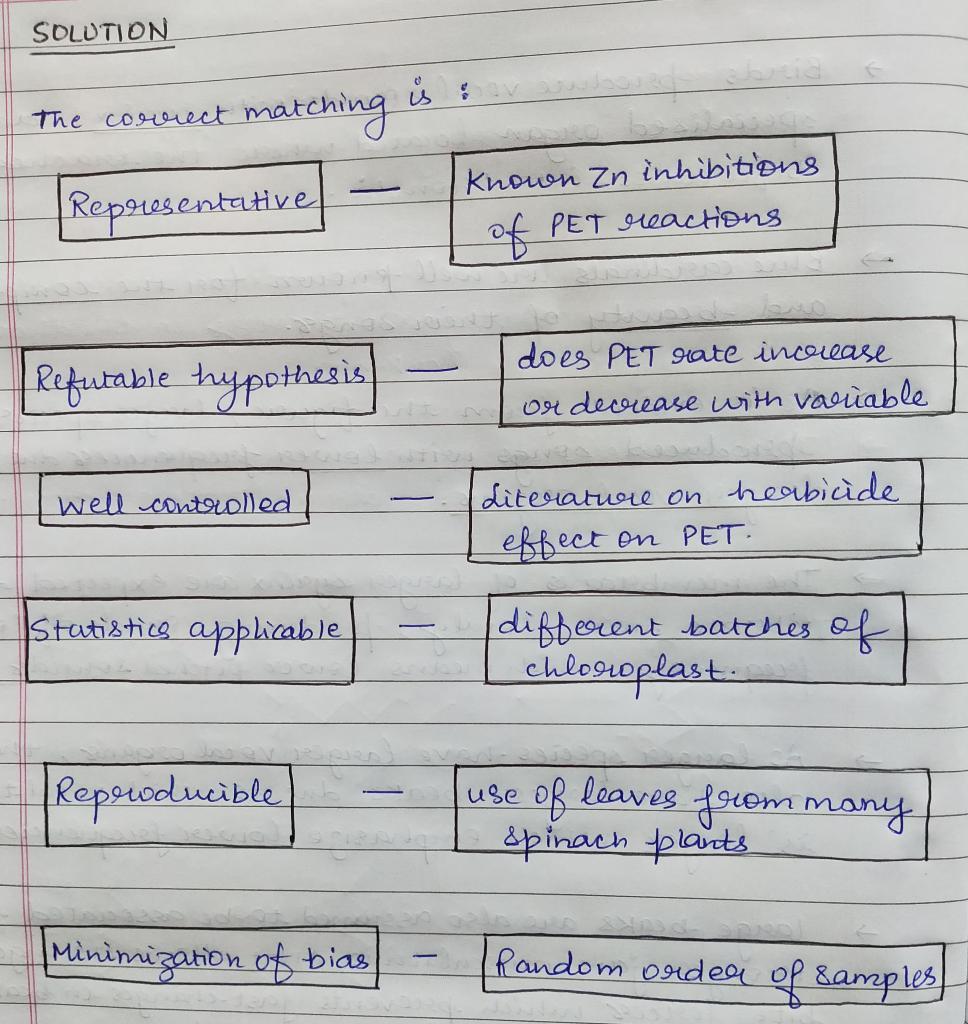 SOLUTION
The correct matching is :
Representative — Known Zn inhibitions
of PET reactions
Refutable hypothesis — does PET rate increase
or decrease with variable
Well controlled — literature on herbicide
effect on PET.
Statistics applicable — different batches of
chloroplast.
Reproducible — use of leaves from many
spinach plants
Minimization of bias — Random order of samples